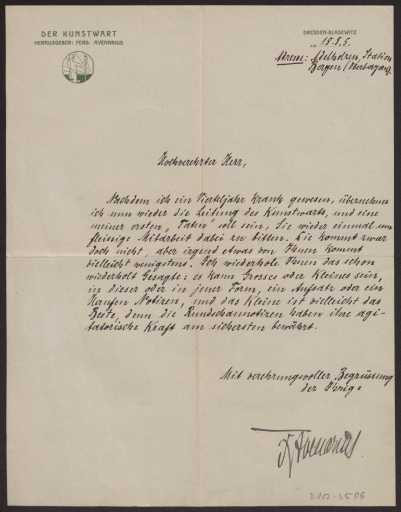 DER KUNSTWART
HERAUSGEBER: FERD. AVENARIUS
DRESDEN-BLASEWITZ
15.8.5.
Adresse: Station
Bozen
Hochverehrter Herr,
Nachdem ich ein Vierteljahr krank gewesen, übernehme
ich nun wieder die Leitung des Kunstwarts, und eine
meiner ersten „Taten" soll sein, Sie wieder einmal um
fleissige Mitarbeit dabei zu bitten. Sie kommt zwar
doch nicht, aber irgend etwas von Ihnen kommt
vielleicht wenigstens. Ich wiederhole Ihnen das schon
wiederholt Gesagte: es kann Grosses oder Kleines sein,
in dieser oder in jener Form, ein Aufsatz oder ein
Haufen Notizen, und das Kleine ist vielleicht das
Beste, denn die Rundschaunotizen haben ihre agi-
tatorische Kraft am sichersten bewährt.
Mit verehrungsvoller Begrüssung
der Ihrige
FAvenarius